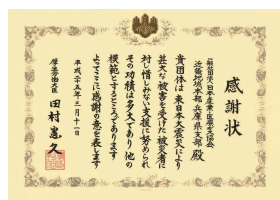 感謝状
一般社団法人日本産業・医療ガス協会
近畿地域本部兵庫県支部 殿
貴団体は東日本大震災により
甚大な被害を受けた被災者に
対し惜しみない支援に努められ
その功績は多大であり他の
模範とするところであります
よってここに感謝の意を表します
平成二十五年三月十一日
厚生労働大臣
田村憲久